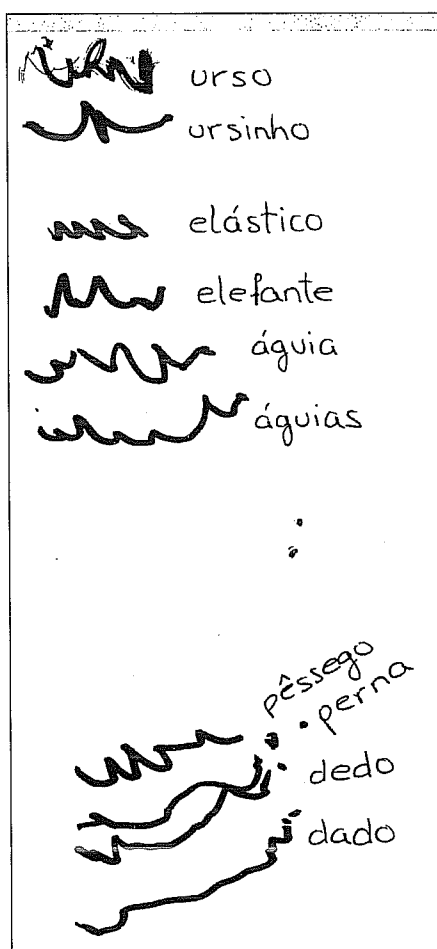 urso
ursinho
elástico
elefante
águia
águias
pêssego
perna
dedo
dado